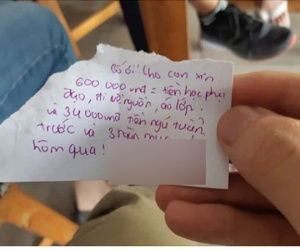 Bố ơi! Cho con xin
600 000 vnđ = tiền học phụ
đạo, đi về nguồn, áo lớp!
và 34 000 vnđ tiền ngủ tuần
trước và 3
hôm qua!